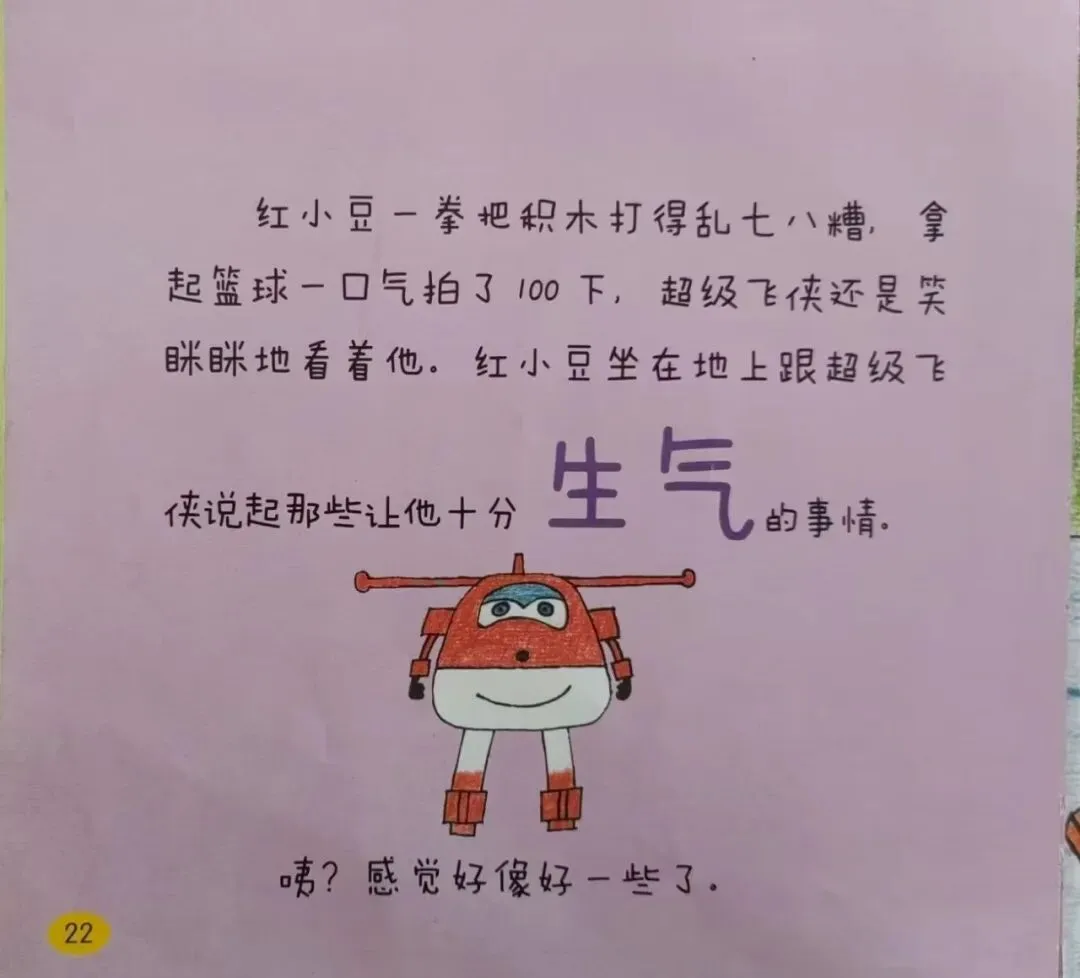 红小豆一拳把积木打得乱七八糟，拿
起篮球一口气拍了100下，超级飞侠还是笑
眯眯地看着他。红小豆坐在地上跟超级飞
侠说起那些让他十分生气的事情。
咦？感觉好像好一些了．
22